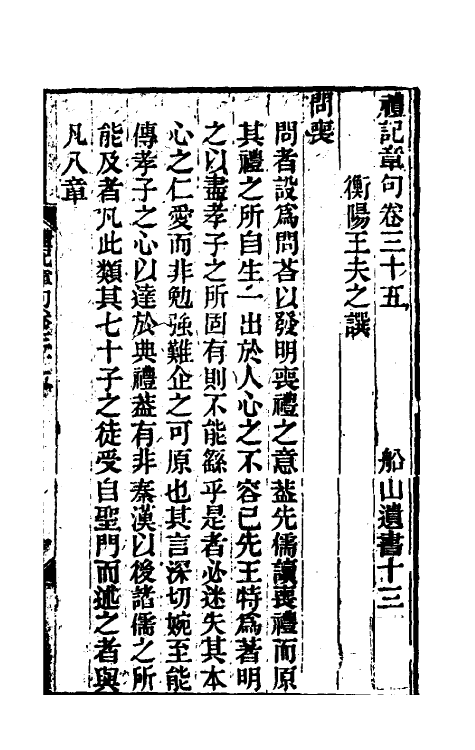 禮記章句卷三十五　船山遺書十三
衡陽王夫之譔
問喪
問者設爲問荅以發明喪禮之意葢先儒讀喪禮而原
其禮之所自生一出於人心之不容已先王特爲著明
之以盡孝子之所固有則不能繇乎是者必迷失其本
心之仁愛而非勉強難企之可原也其言深切婉至能
傳孝子之心以達於典禮葢有非秦漢以後諸儒之所
能及者凡此類其七十子之徒受自聖門而述之者與
凡八章